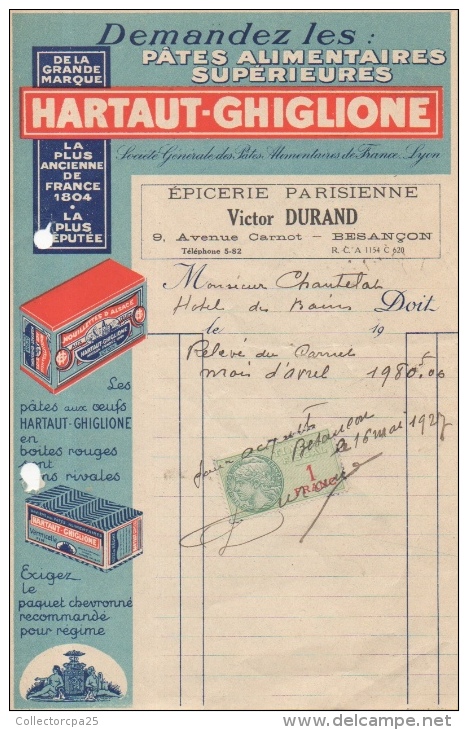 Demandez les :
PÂTES ALIMENTAIRES
SUPÉRIEURES
DE LA
GRANDE
MARQUE
HARTAUT-GHIGLIONE
Société Générale des Pâtes Alimentaires de France. Lyon
LA
PLUS
ANCIENNE
DE
FRANCE
1804
•
LA
PLUS
RÉPUTÉE
ÉPICERIE PARISIENNE
Victor DURAND
9, Avenue Carnot – BESANÇON
Téléphone 5-82
R. C. A 1154 C 620
Monsieur Chautelat
Hotel des Bains Doit
le 19
Relevé du Carnet
mois d'avril 1980f,00
pour acquit
Besançon
le 16 mai 1927
1
FRANC
NOUILLETTES D'ALSACE
HARTAUT-GHIGLIONE
Les
pâtes aux œufs
HARTAUT-GHIGLIONE
en
boites rouges
sont
sans rivales
HARTAUT-GHIGLIONE
Vermicelle
Exigez
le
paquet chevronné
recommandé
pour régime
Collectorcpa25